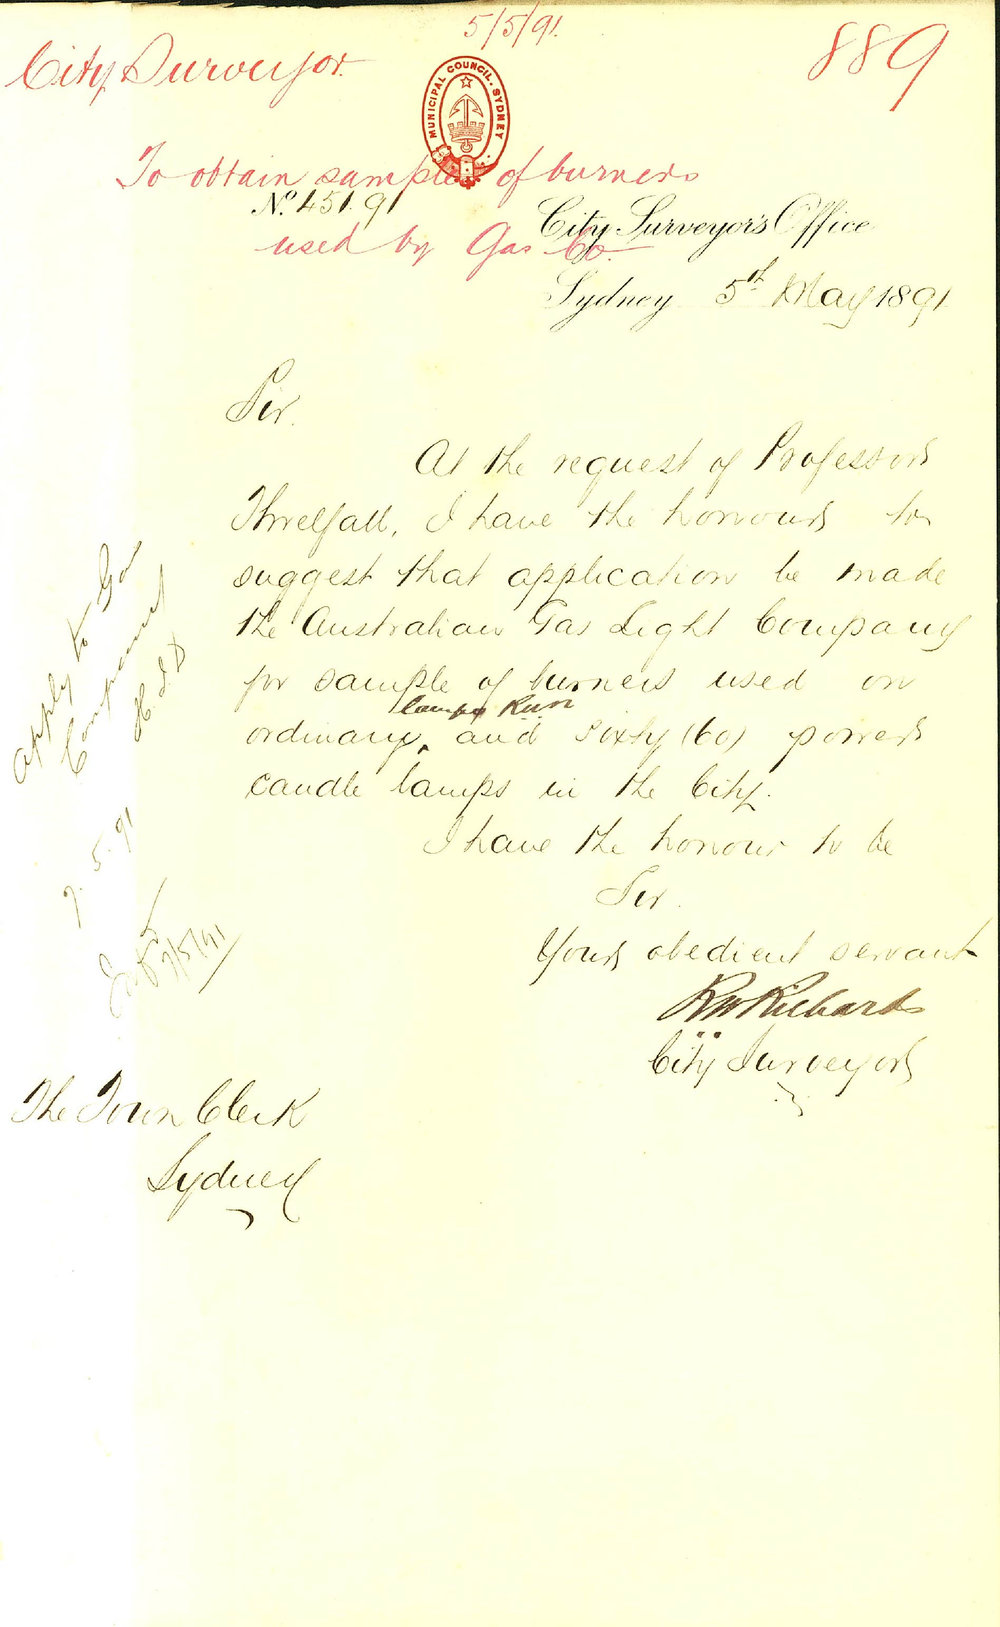 5/5/91.
889
City Surveyor.
MUNICIPAL COUNCIL. SYDNEY
To obtain sample of burners
No. 451.91
City Surveyor's Office
used by Gas Co.
Sydney 5th May 1891
Sir.
At the request of Professor
Threlfall, I have the honour to
suggest that application be made
the Australian Gas Light Company
for sample of burners used on
lamps
ordinary, and sixty (60) power
candle lamps in the City.
I have the honour to be
Sir.
Yours obedient servant
RW Richards
City Surveyor
The Town Clerk
Sydney
Apply to Gas
Company
7.5.91
7/5/91